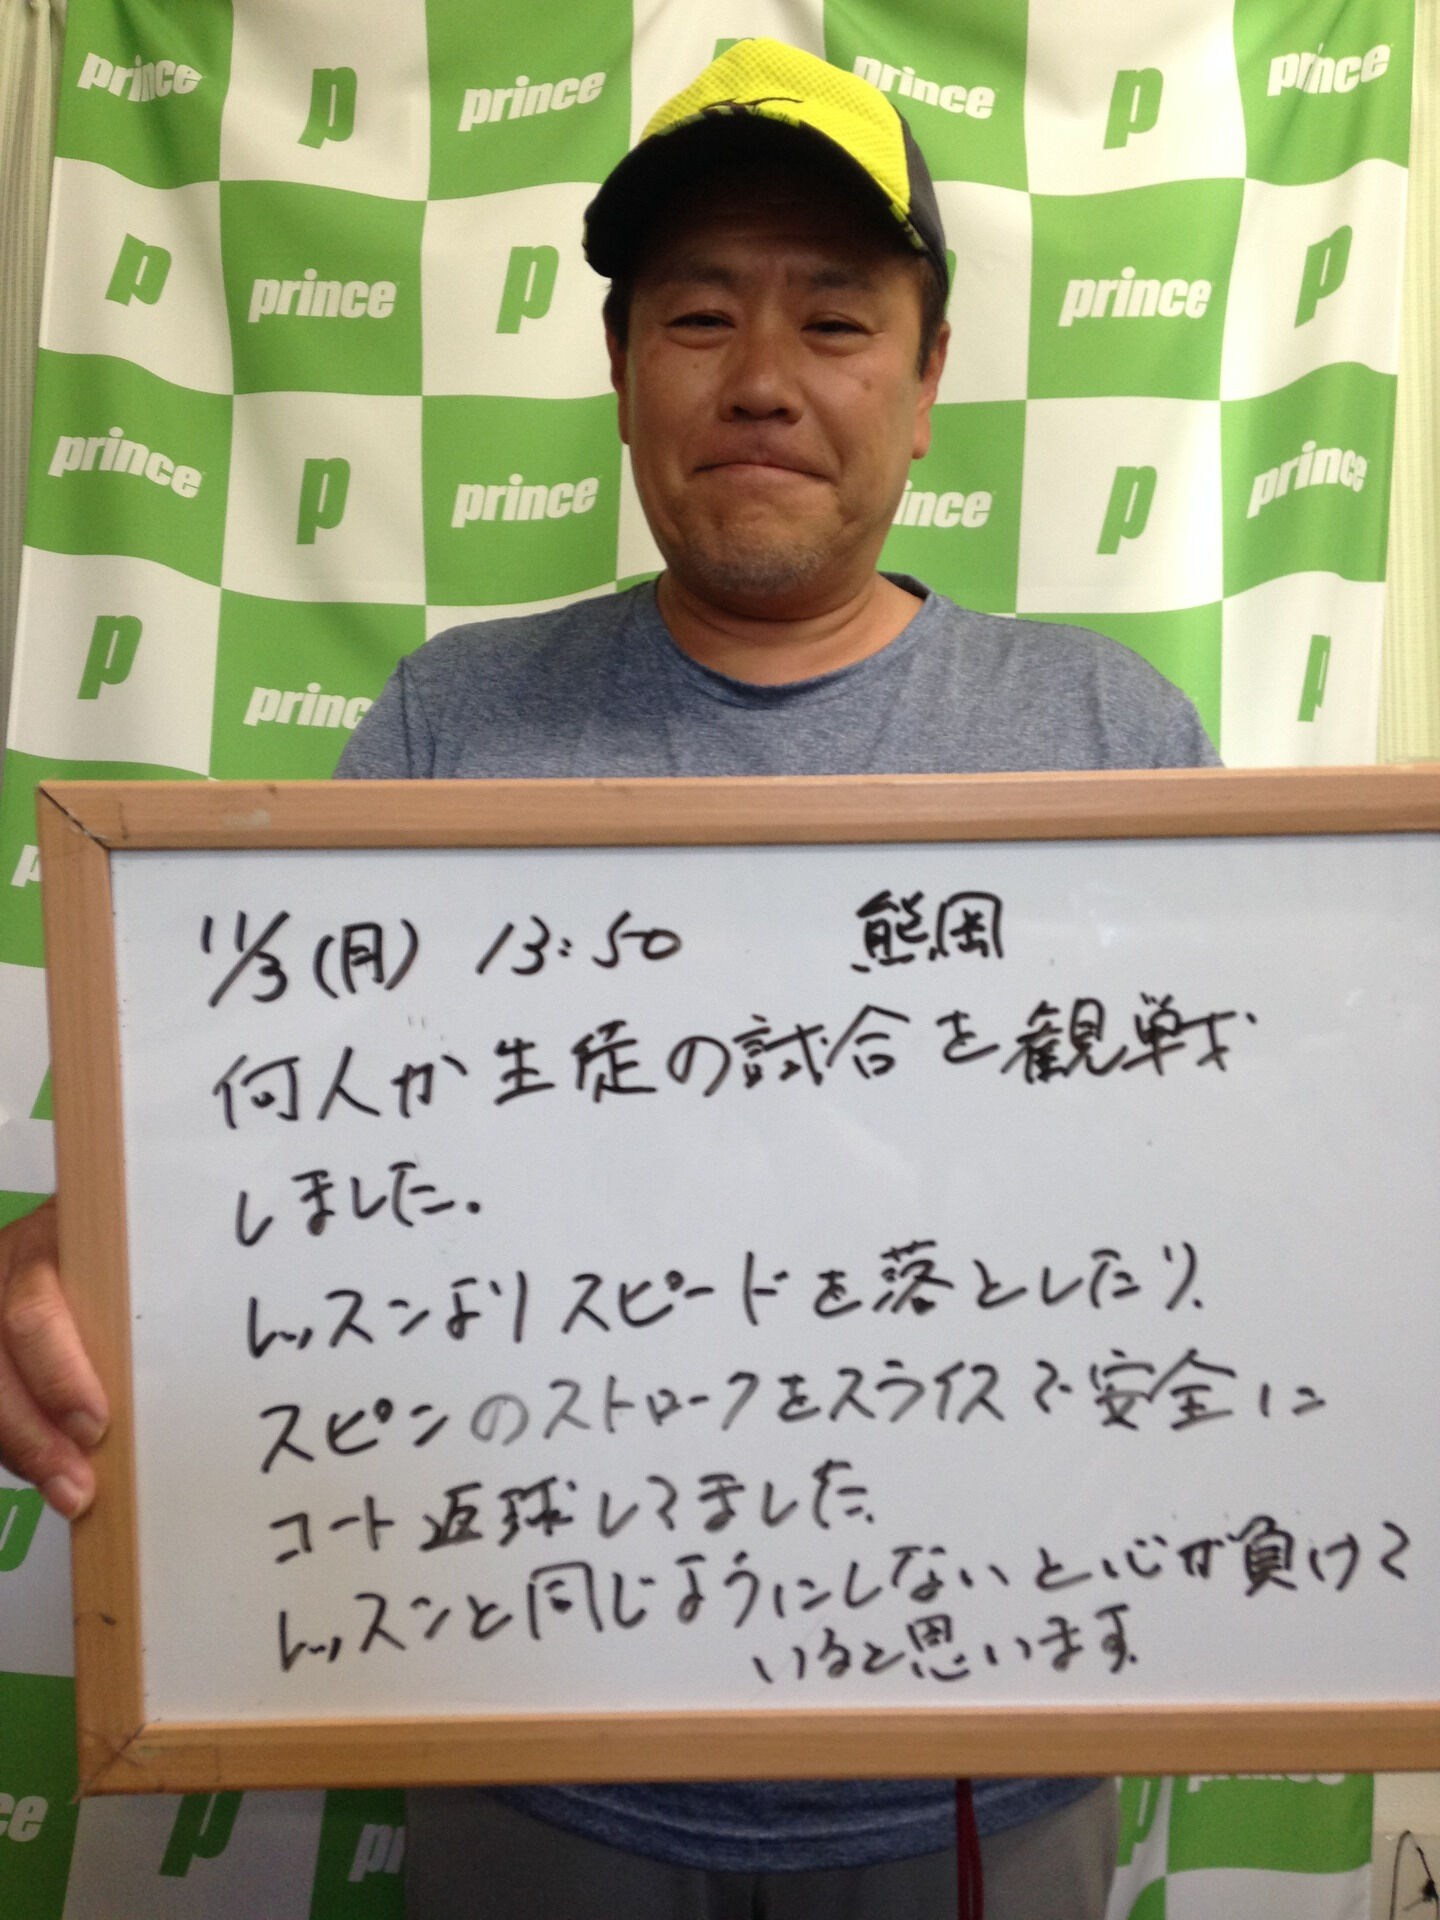 prince p prince p prince prince
p prince p prince p
prince p prince prince p prince
p princ p
p
11/3(月) 13:50 熊岡
何人か生徒の試合を観戦
しました。
レッスンより スピードを落としたり、
スピンのストロークをスライスで安全に
コート返球してました。
レッスンと同じようにしないと心が負けて
いると思います。
p
ce p pri p prince